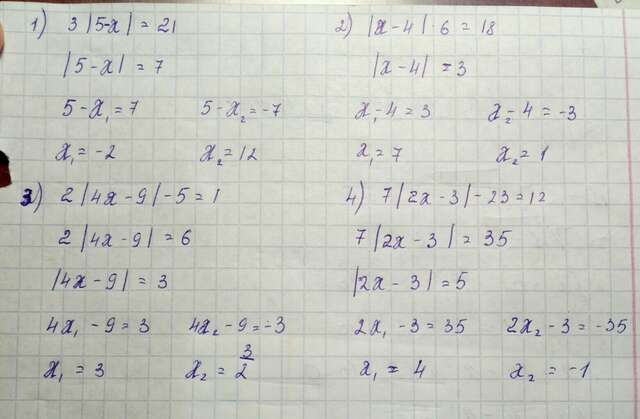 1) 3 |5-x| = 21
|5-x| = 7
5-x₁=7 5-x₂=-7
x₁=-2 x₂=12
2) |x-4|·6=18
|x-4|=3
x₁-4=3 x₂-4=-3
x₁=7 x₂=1
3) 2|4x-9|-5=1
2|4x-9|=6
|4x-9|=3
4x₁-9=3 4x₂-9=-3
x₁=3 x₂=3/2
4) 7|2x-3|-23=12
7|2x-3|=35
|2x-3|=5
2x₁-3=35 2x₂-3=-35
x₁=4 x₂=-1